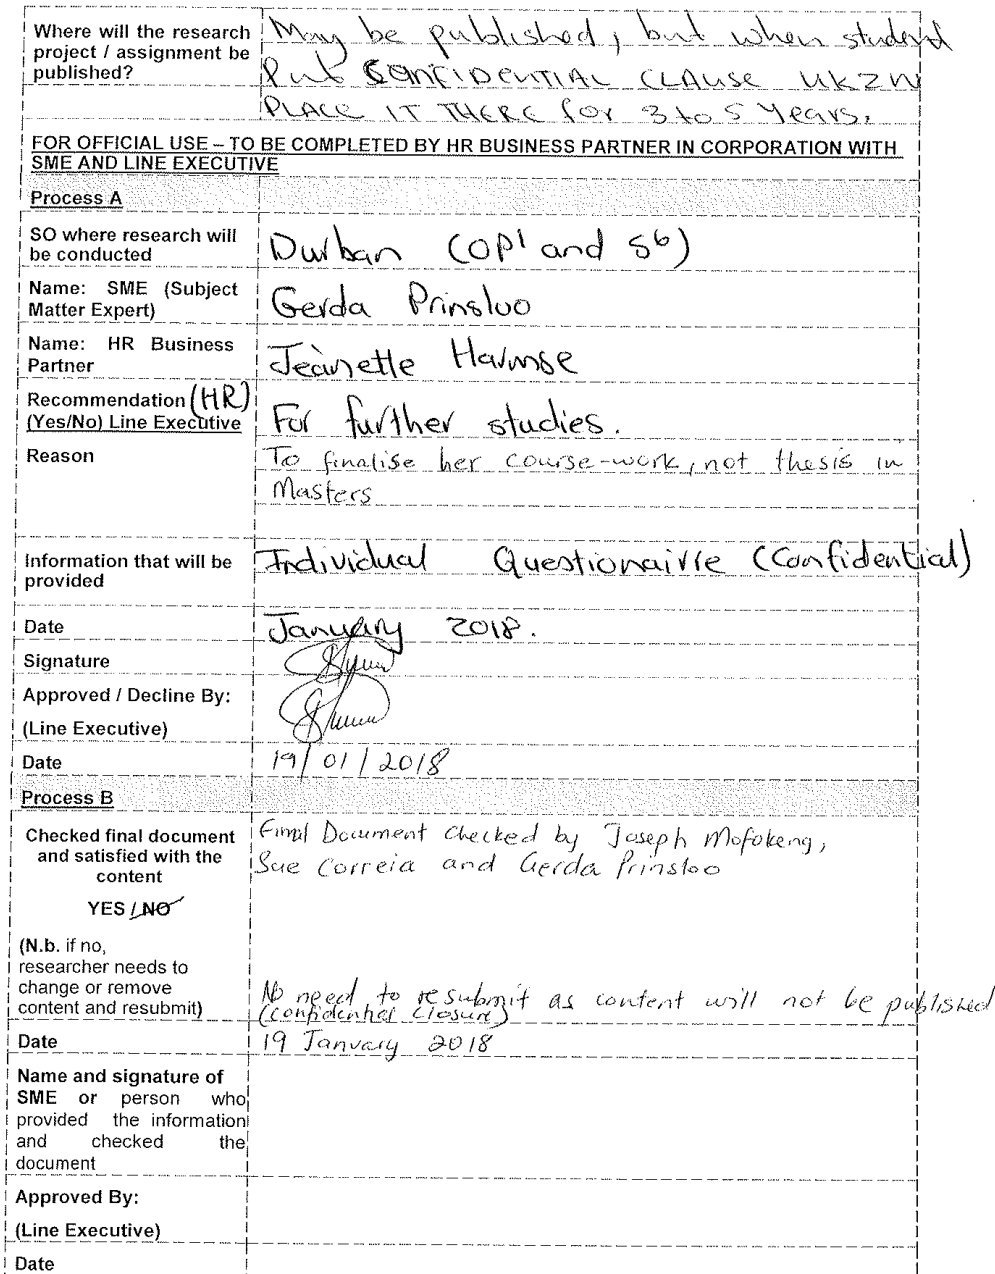 Where will the research project / assignment be published?
May be published, but when student
Put CONFIDENTIAL CLAUSE UKZN
PLACE IT THERE for 3 to 5 Years.
FOR OFFICIAL USE – TO BE COMPLETED BY HR BUSINESS PARTNER IN CORPORATION WITH
SME AND LINE EXECUTIVE
Process A
SO where research will
be conducted
Durban (OP1 and S6)
Name: SME (Subject
Matter Expert)
Gerda Prinsloo
Name: HR Business
Partner
Jeanette Harmse
Recommendation (HR)
(Yes/No) Line Executive
For further studies.
Reason
To finalise her course-work, not thesis in
Masters
Information that will be
provided
Individual Questionairre (Confidential)
Date
January 2018.
Signature
Approved / Decline By:
(Line Executive)
Date
19/01/2018
Process B
Checked final document
and satisfied with the
content
YES / NO
Final Document Checked by Joseph Mofokeng,
Sue Correia and Gerda Prinsloo
(N.b. if no,
researcher needs to
change or remove
content and resubmit)
No need to resubmit as content will not be published
(Confidential Closure)
Date
19 January 2018
Name and signature of
SME or person who
provided the information
and checked the
document
Approved By:
(Line Executive)
Date